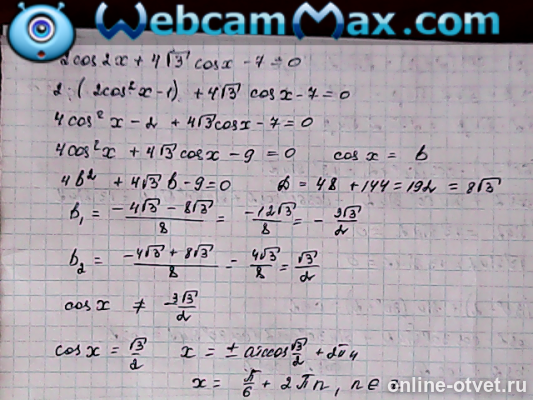 WebcamMax.com
2cos2x + 4√3 cosx - 7 = 0
2·(2cos²x - 1) + 4√3 cosx - 7 = 0
4cos²x - 2 + 4√3cosx - 7 = 0
4cos²x + 4√3cosx - 9 = 0 cosx = b
4b² + 4√3 b - 9 = 0 D = 48 + 144 = 192 = 8√3
b₁ = (-4√3 - 8√3)/8 = -12√3/8 = -3√3/2
b₂ = (-4√3 + 8√3)/8 = 4√3/8 = √3/2
cosx ≠ -3√3/2
cosx = √3/2 x = ± arccos √3/2 + 2πn
x = π/6 + 2πn, n ∈
online-otvet.ru